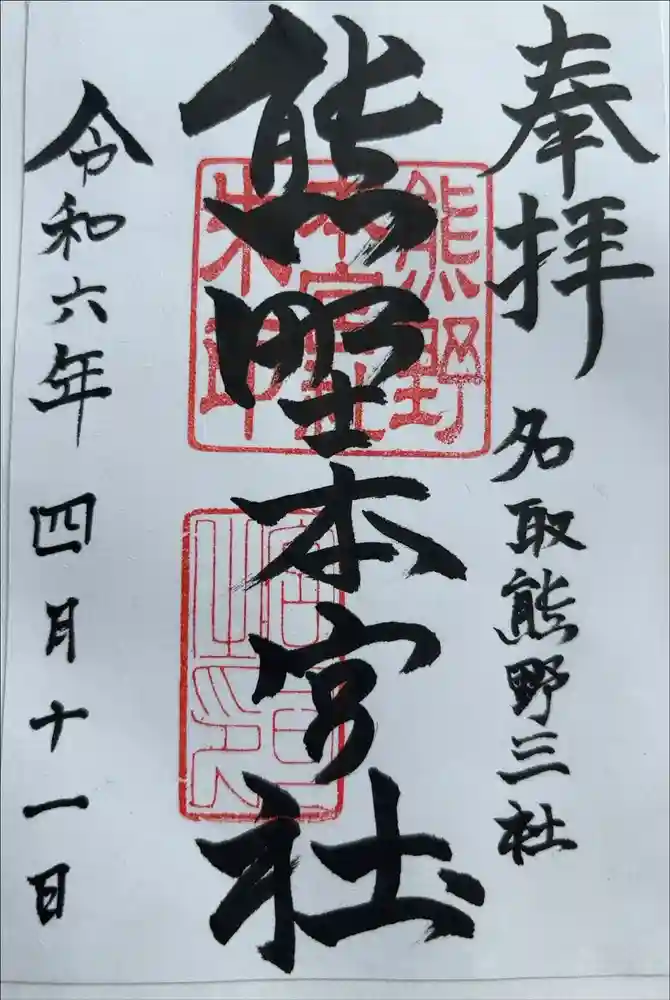 奉拝
名取熊野三社
熊野本宮社
熊野
本宮社
朱印
宮司
之印
令和六年 四月十一日